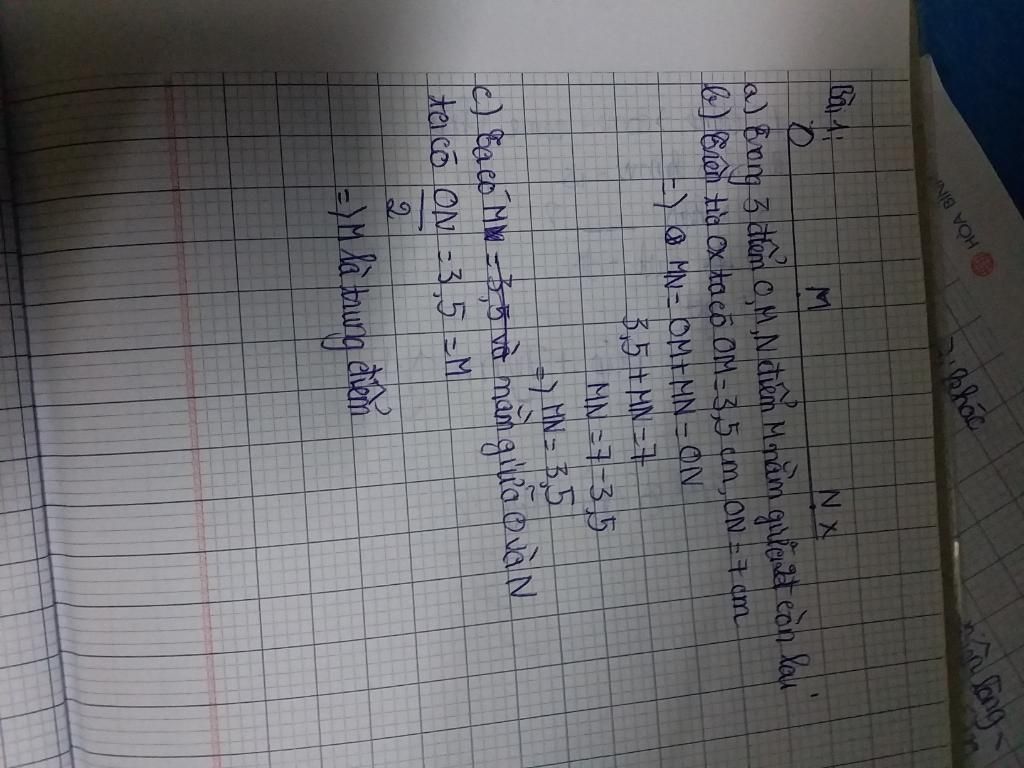 Bài 1
O M N x
a) Trong 3 điểm O, M, N điểm M nằm giữa 2đ còn lại
b) Trên tia Ox ta có OM = 3,5 cm, ON = 7 cm
=) MN = OM + MN = ON
3,5 + MN = 7
MN = 7 - 3,5
=) MN = 3,5
c) Ta có M nằm giữa O và N
ta có ON/2 = 3,5 = M
=) M là trung điểm
HOA BÌN